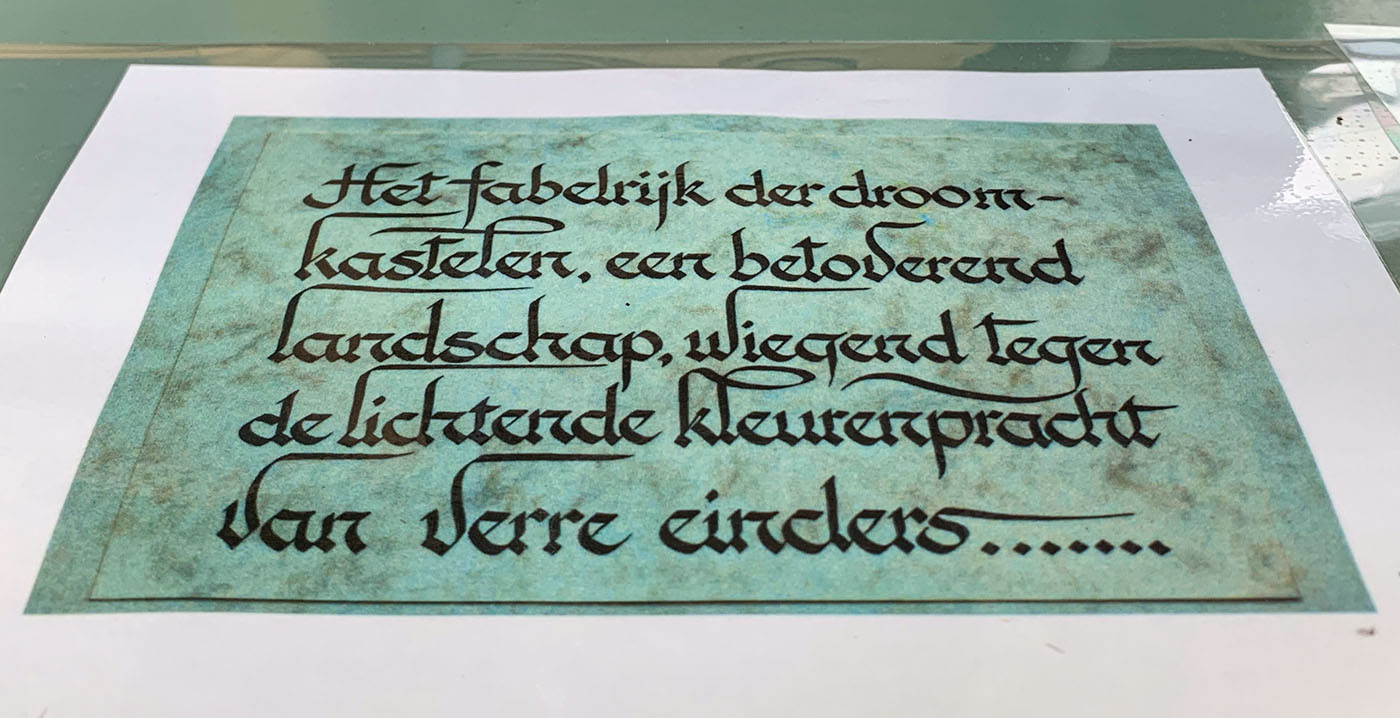 Het fabelrijk der droom-
kastelen, een betoverend
landschap, wiegend tegen
de lichtende kleurenpracht
van verre einders.......